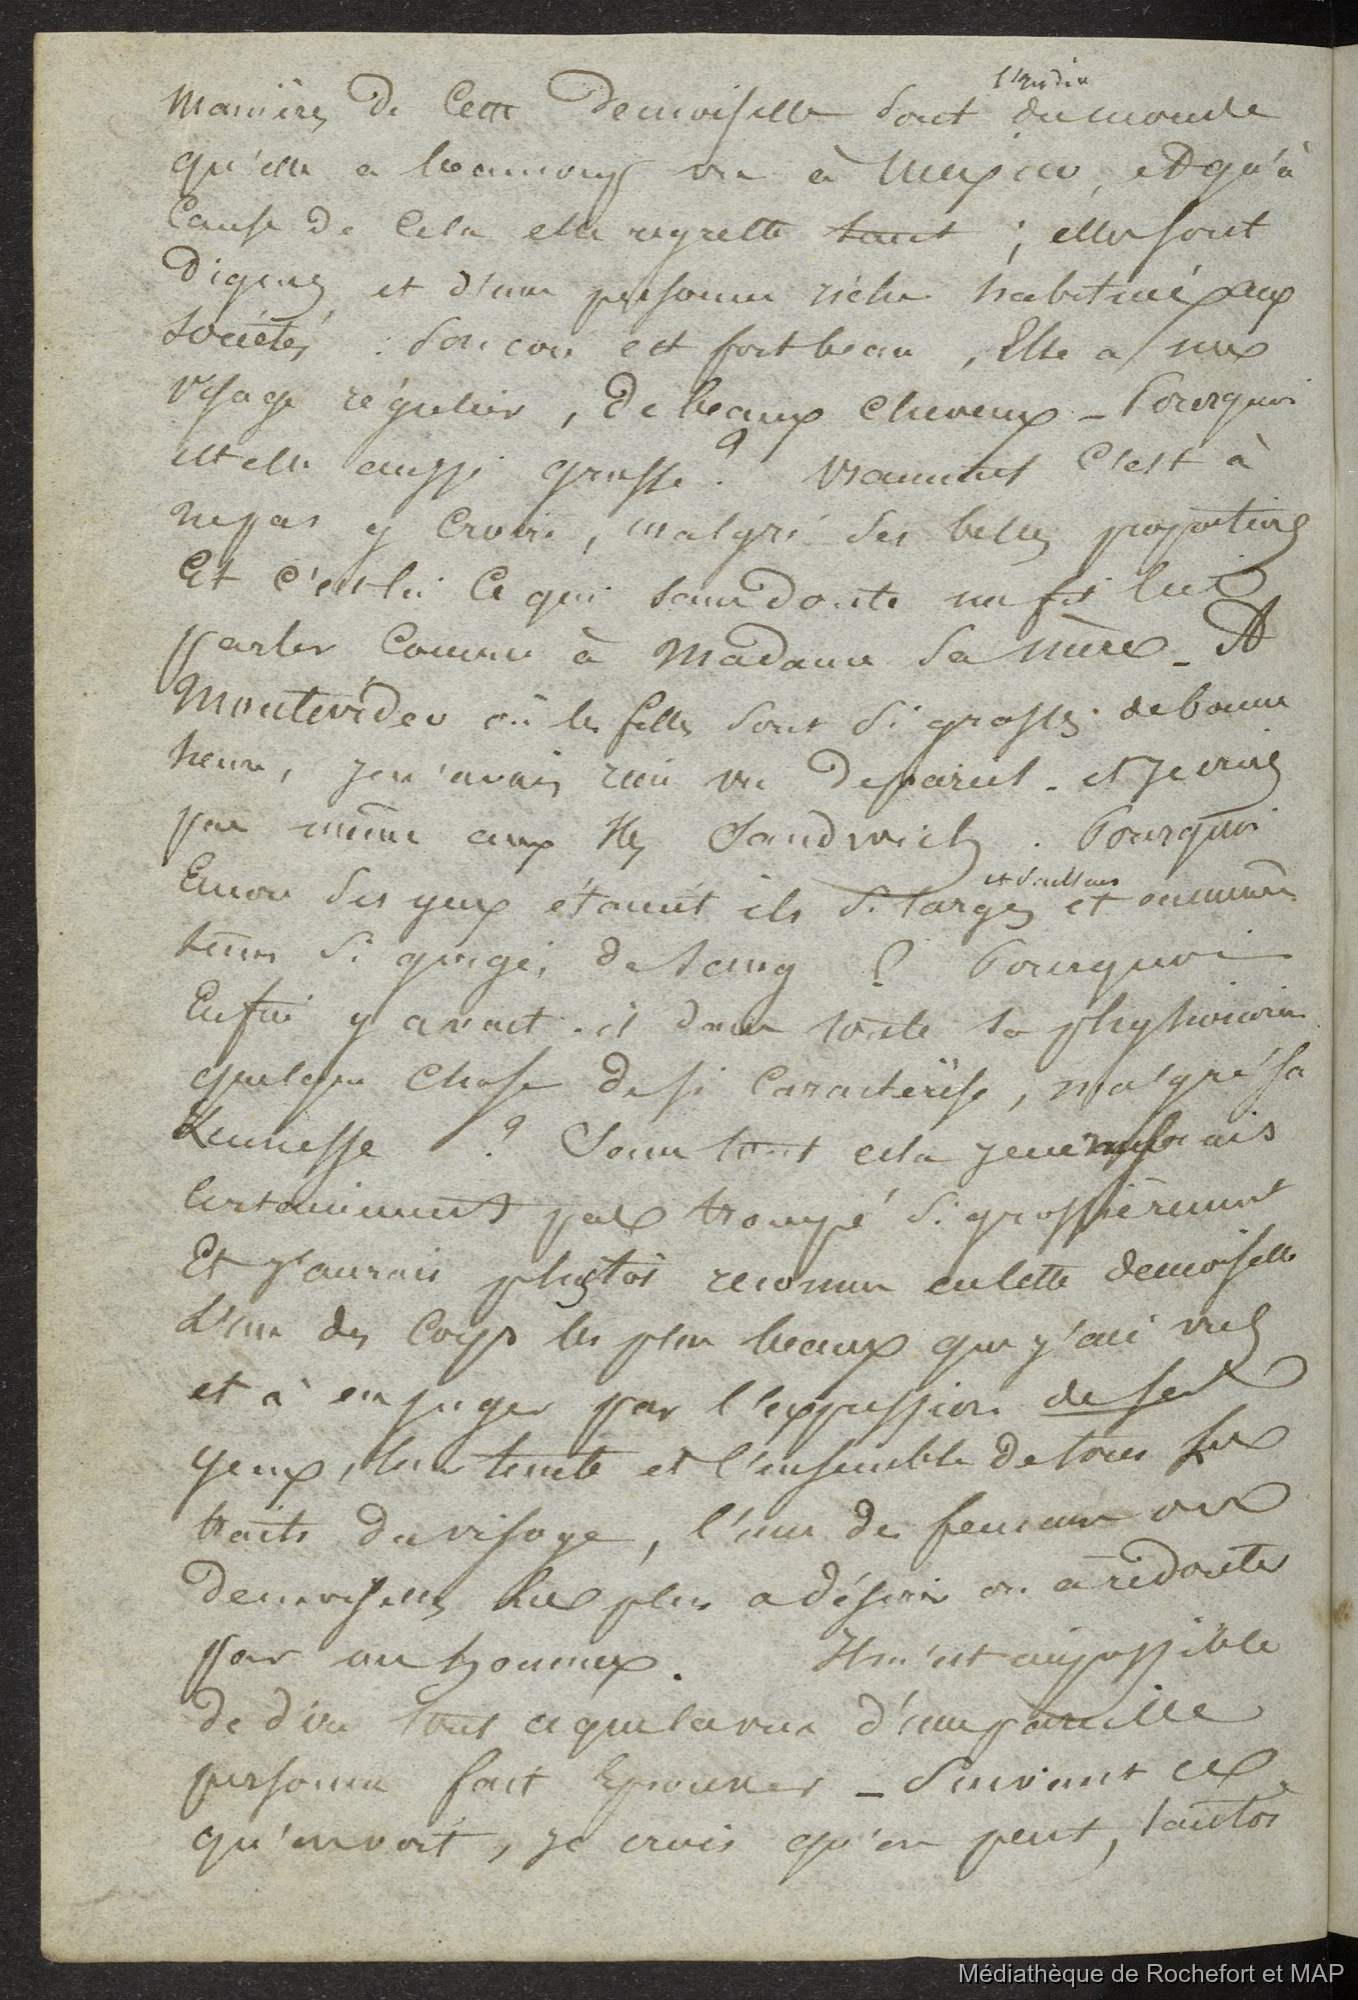 manières de cette demoiselle sont du monde
qu'elle a beaucoup vu à Mexico, et qu'à
cause de cela elle regrette tant ; elles sont
dignes et d'une personne riche habitué aux
sociétés. Son cou est fort beau, Elle a un
visage régulier, de beaux cheveux _ Pourquoi
est elle aussi grosse ? vraiment c'est à
ne pas y croire, malgré ses belles proportions
Et c'est là ce qui sans doute me fis lui
parler comme à Madame sa mère _ A
Montevideo où les filles sont si grosses de bonne
heure, je n'avais rien vu de pareil _ et je crois
pas même aux Iles Sandwich. Pourquoi
Encor ses yeux étaient ils si larges et saillans et en même
tems si gorgés de sang ? Pourquoi
Enfin y avait-il dans toute sa physionomie
quelque chose de si caractérisé, malgré sa
Jeunesse ? Sans tout cela je ne me serais
certainement pas trompé si grossièrement
Et j'aurais plustôt reconnu en cette demoiselle
L'un des corps les plus beaux que j'aie vus
et à en juger par l'expression de ses
yeux, leur teinte et l'ensemble de tous les
traits du visage, l'une des femmes ou
demoiselles les plus a désirer ou à redouter
par un homme. Il m'est impossible
de dire tout ce que la vue d'une pareille
personne fait Eprouver _ Suivant ce
qu'on voit, je crois qu'on peut, tantôt